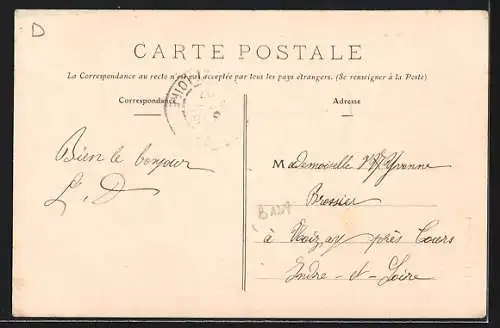 D
CARTE POSTALE
La Correspondance au recto n'est pas acceptée par tous les pays étrangers. (Se renseigner à la Poste)
Correspondance
Adresse
Bien le bonjour
L. D
Mademoiselle Yvonne
Brossier
à Noizay près Tours
Indre-et-Loire